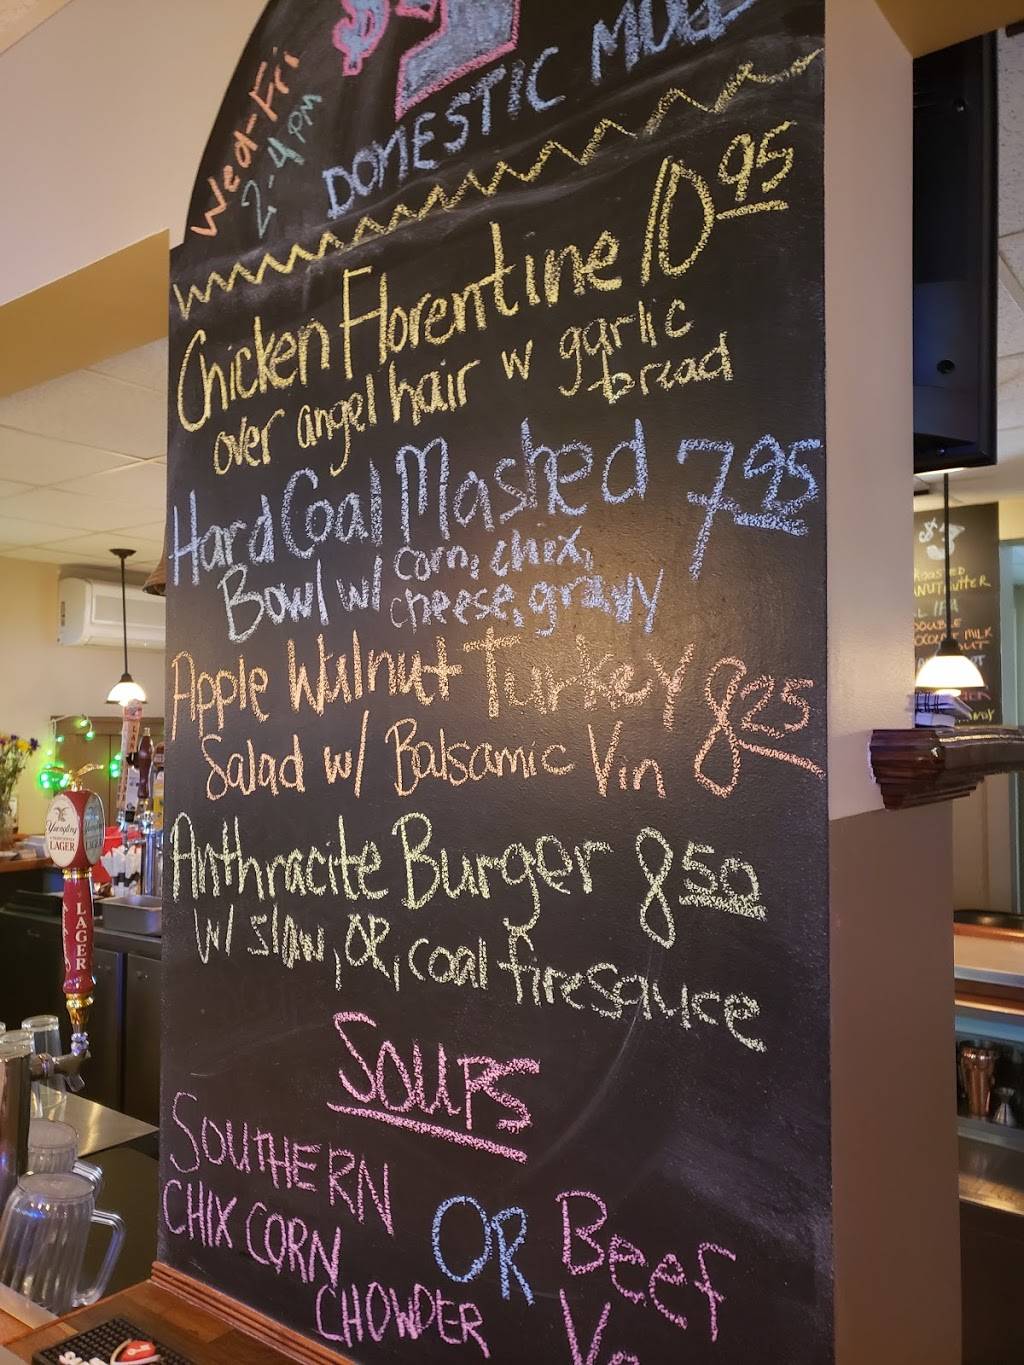 Wed-Fri
2-4 PM
DOMESTIC
Chicken Florentine 10 95
over angel hair w garlic
bread
Hard Coal Mashed 7 95
Bowl w/ corn, chix,
cheese, gravy
Apple Walnut Turkey 8 25
Salad w/ Balsamic Vin
Anthracite Burger 8 50
w/ slaw, OR, coal fire sauce
SOUPS
SOUTHERN
CHIX CORN
CHOWDER
OR
Beef
Yuengling
LAGER
LAGER
ROASTED
IPA
DOUBLE
MILK